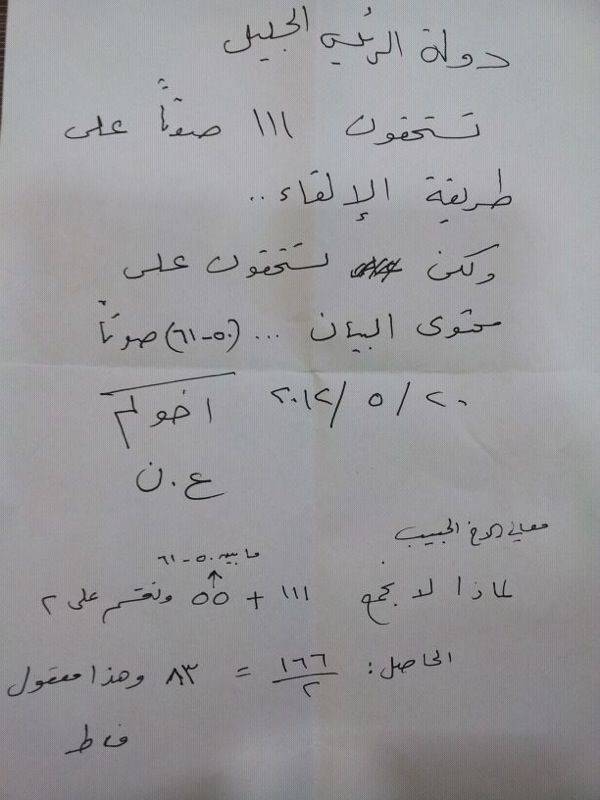 دولة الرئيس الجليل
تستحقون ١١١ صوتاً على
طريقة الإلقاء ..
ولكن تستحقون على
محتوى البيان ... (٥٠-٦١) صوتاً
٢٠ / ٥ / ٢٠١٢ اخوكم
ع.ن
معالي الاخ الحبيب
ما بين ٥٠-٦١
لماذا لا نجمع ١١١ + ٥٥ ونقسم على ٢
الحاصل: ١٦٦/٢ = ٨٣ وهذا معقول
ف ط